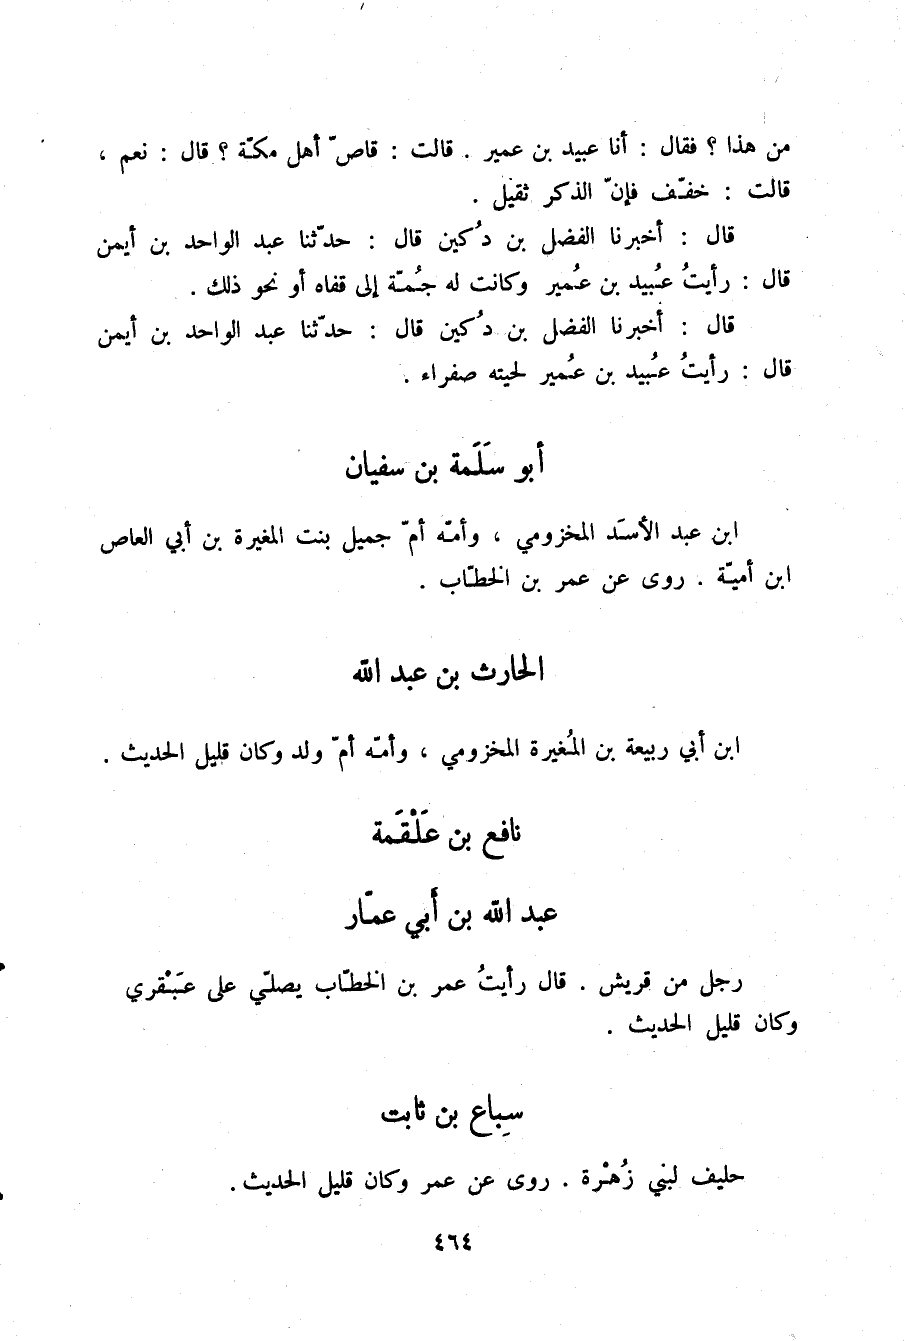 من هذا ؟ فقال : أنا عبيد بن عمير . قالت : قاصّ أهل مكّة ؟ قال : نعم ،
قالت : خفّف فإنّ الذكر ثقيل .
قال : أخبرنا الفضل بن دُكين قال : حدّثنا عبد الواحد بن أيمن
قال : رأيتُ عُبيد بن عُمير وكانت له جُمّة إلى قفاه أو نحو ذلك .
قال : أخبرنا الفضل بن دُكين قال : حدّثنا عبد الواحد بن أيمن
قال : رأيتُ عُبيد بن عُمير لحيته صفراء .
أبو سَلَمة بن سفيان
ابن عبد الأسَد المخزومي ، وأمّه أمّ جميل بنت المغيرة بن أبي العاص
ابن أميّة . روى عن عمر بن الخطّاب .
الحارث بن عبد الله
ابن أبي ربيعة بن المُغيرة المخزومي ، وأمّه أمّ ولد وكان قليل الحديث .
نافع بن عَلْقَمة
عبد الله بن أبي عمّار
رجل من قريش . قال رأيتُ عمر بن الخطّاب يصلّي على عَبْقري
وكان قليل الحديث .
سِباع بن ثابت
حليف لبني زُهْرة . روى عن عمر وكان قليل الحديث .
٤٦٤